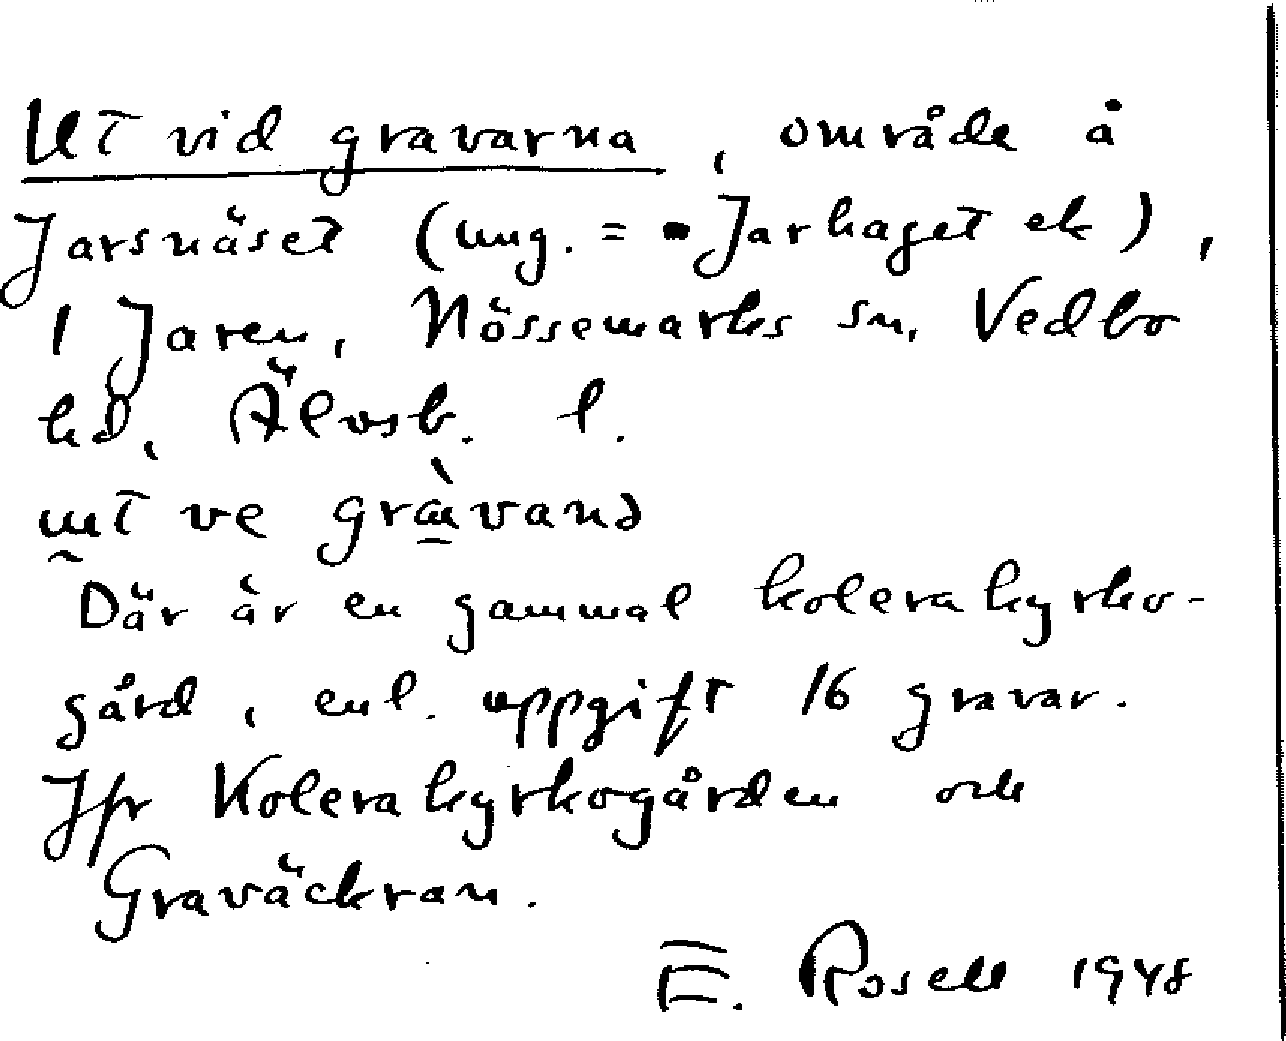 Ut vid gravarna, område å
Jarsnäset (ung. = Jarhaget ek),
1 Jaren, Nössemarks sn, Vedbo
hd, Älvsb. l.
ve
Där är en gammal kolerakyrko-
gård, enl. uppgift 16 gravar.
Jfr Kolerakyrkogården och
Graväckran.
E. Rosell 1948